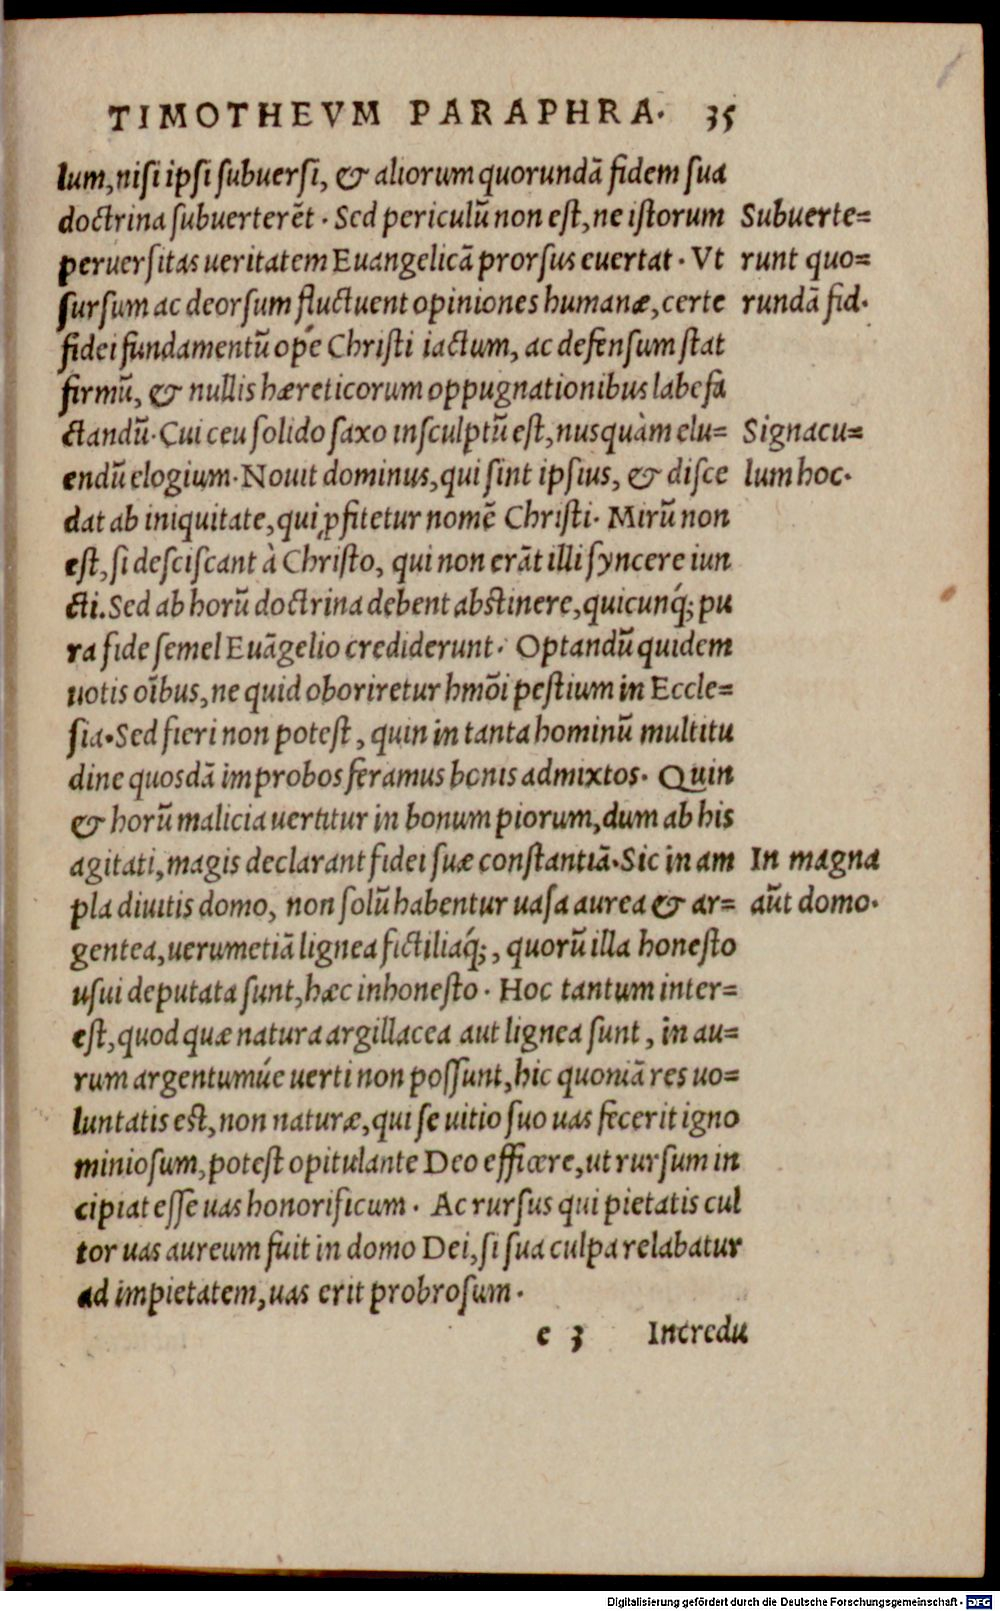 TIMOTHEVM PARAPHRA. 35
lum, nisi ipsi subuersi, & aliorum quorundã fidem sua
doctrina subuerterẽt. Sed periculũ non est, ne istorum
peruersitas ueritatem Euangelicã prorsus euertat. Vt
sursum ac deorsum fluctuent opiniones humanæ, certe
fidei fundamentũ opé Christi iactum, ac defensum stat
firmũ, & nullis hæreticorum oppugnationibus labefa
ctandũ. Cui ceu solido saxo insculptũ est, nusquàm elu=
endũ elogium. Nouit dominus, qui sint ipsius, & disce
dat ab iniquitate, qui ꝓfitetur nomẽ Christi. Mirũ non
est, si desciscant à Christo, qui non erãt illi syncere iun
cti. Sed ab horũ doctrina debent abstinere, quicunq́; pu
ra fide semel Euãgelio crediderunt. Optandũ quidem
uotis oĩbus, ne quid oboriretur hmõi pestium in Eccle=
sia. Sed fieri non potest, quin in tanta hominũ multitu
dine quosdã improbos feramus bonis admixtos. Quin
& horũ malicia uertitur in bonum piorum, dum ab his
agitati, magis declarant fidei suæ constantiã. Sic in am
pla diuitis domo, non solũ habentur uasa aurea & ar=
gentea, uerumetiã lignea fictiliaq́;, quorũ illa honesto
usui deputata sunt, hæc inhonesto. Hoc tantum inter=
est, quod quæ natura argillacea aut lignea sunt, in au=
rum argentumúe uerti non possunt, hic quoniã res uo=
luntatis est, non naturæ, qui se uitio suo uas fecerit igno
miniosum, potest opitulante Deo efficere, ut rursum in
cipiat esse uas honorificum. Ac rursus qui pietatis cul
tor uas aureum fuit in domo Dei, si sua culpa relabatur
ad impietatem, uas erit probrosum.
e 3 Incredu
Subuerte=
runt quo=
rundã fid.
Signacu=
lum hoc.
In magna
aũt domo.
Digitalisierung gefördert durch die Deutsche Forschungsgemeinschaft - DFG